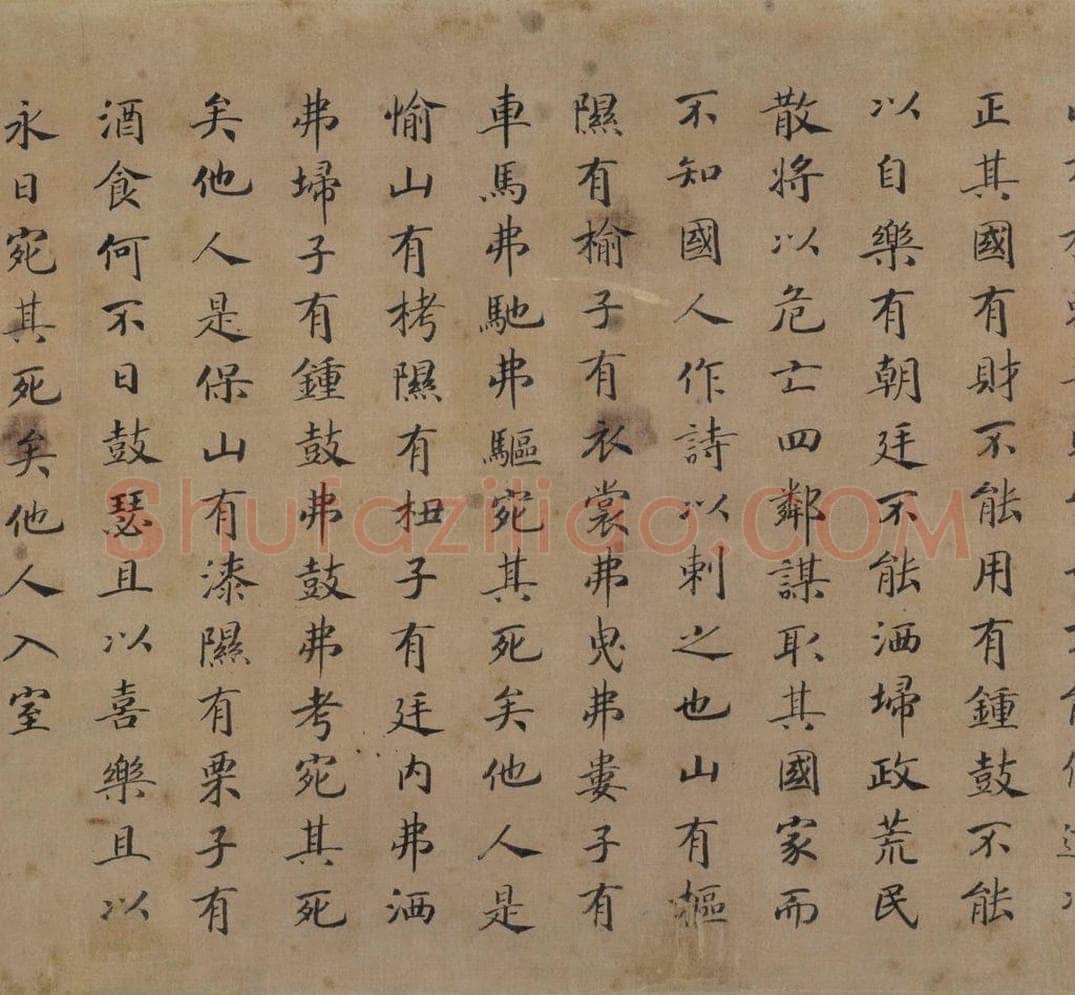 正其國有財不能用有鍾鼓不能
以自樂有朝廷不能洒埽政荒民
散將以危亡四鄰謀取其國家而
不知國人作詩以刺之也山有樞
隰有榆子有衣裳弗曳弗婁子有
車馬弗馳弗驅宛其死矣他人是
愉山有栲隰有杻子有廷内弗洒
弗埽子有鍾鼓弗鼓弗考宛其死
矣他人是保山有漆隰有栗子有
酒食何不日鼓瑟且以喜樂且以
永日宛其死矣他人入室
Shufaziliao.COM